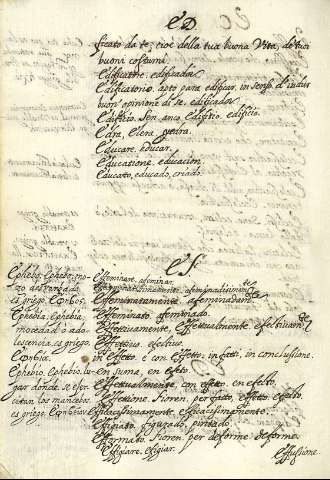 ED
ficato da te; cioè della tua buona Vita, de tuoi
buoni costumi.
Edificatore. edificador.
Edificatorio. apto para edificar, in senso d'indur
buon' opinione di se. edificador.
Edificio. Sen. anco Edifitio. edificio.
Edra, Elera. yedra.
Educare. educar.
Educatione. educacion.
Educato, educado, criado.
EF.
Effeminare. afeminar.
Effeminatamente. afeminadamente.
Effeminato. afeminado.
Effettivamente, Effettualmente. efectivamente
Effettivo. efectivo.
In Effetto, è con Effetto: infatti, in conclusione.
en suma, en efeto.
Effettualmente, con effetto. en efecto.
Effettione. Fioren. per fatto, effetto. efecto.
Efficacissimamente. efficacissimamente.
Effigiato. figurado, pintado.
Efformato. Fioren. per deforme. deforme.
Effigiare. efigiar.
Effusione.
Ephebo. Ephebo, mo-
zo
es griego.
Ephebia. Ephebia,
mocedad o ado-
lescencia. es griego
Ephebio. Ephebio. lu-
gar donde se exer-
citan los mancebos.
es griego